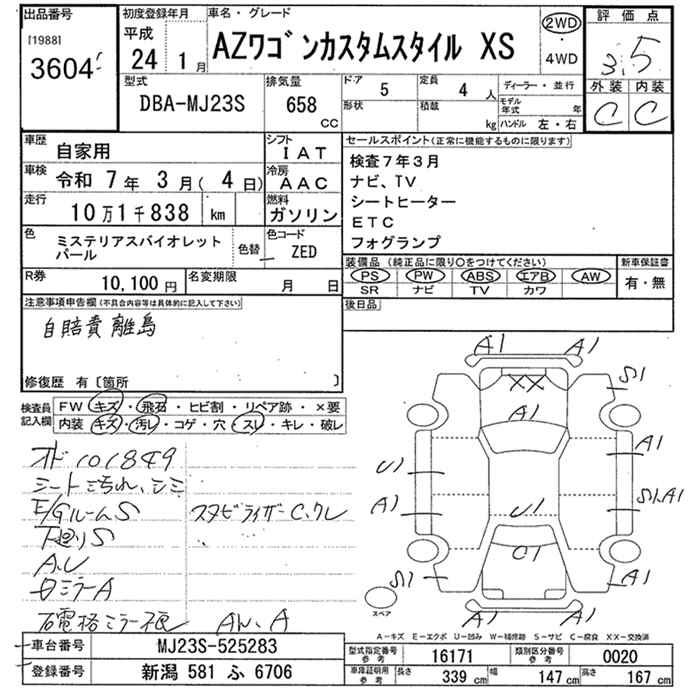 出品番号
[1988]
3604
初度登録年月
平成
24 1月
車名・グレード
AZワゴンカスタムスタイル XS
2WD
・
4WD
評価点
3.5
外装 内装
C C
型式
DBA-MJ23S
排気量
658 CC
ドア 5
定員 4 人
形状
積載 kg
ディーラー・並行
モデル年式 年
ハンドル 左・右
車歴
自家用
シフト
IAT
車検 令和 7年 3月( 4日)
冷房
AAC
走行
10万1千838 km
燃料
ガソリン
色
ミステリアスバイオレット
パール
色替
色コード
ZED
R券 10,100円
名変期限 月 日
セールスポイント(正常に機能するものに限ります)
検査7年3月
ナビ、TV
シートヒーター
ETC
フォグランプ
装備品(純正品に限り○をつけてください)
PS PW ABS エアB AW
SR ナビ TV カワ
新車保証書
有・無
後日品
注意事項申告欄(不具合内容等は具体的に記入して下さい)
自賠責離島
修復歴 有〔箇所 〕
検査員記入欄
FW キズ・飛石・ヒビ割・リペア跡・×要
内装 キズ・汚レ・コゲ・穴・スレ・キレ・破レ
オドロ101849
シートよごれ、シミ
E/GルームS スタビライザーC、クレ
下廻りS
A、U
ミラーA
A1 A1
XX
S1
A1
A1
U1
S1、A1
A1
U1
U1
S1
A1
A1 A1
スペア
A-キズ E-エクボ U-凹み W-補修跡 S-サビ C-腐食 XX-交換済
車台番号 MJ23S-525283
登録番号 新潟 581 ふ 6706
型式指定番号 参考 16171
類別区分番号 参考 0020
車庫証明用 参考 長さ 339 cm 幅 147 cm 高さ 167 cm